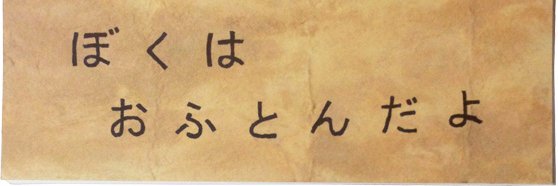 ぼくは
おふとんだよ